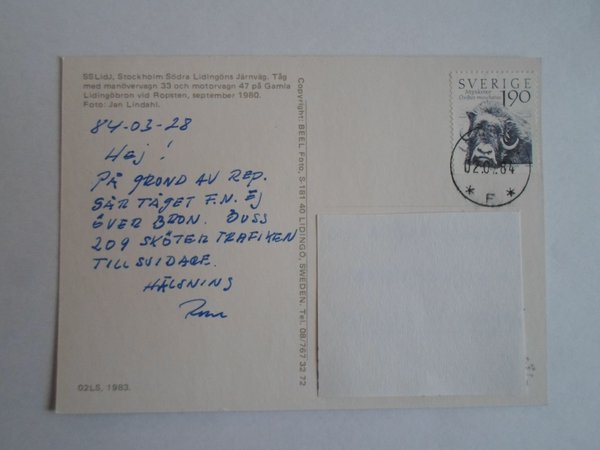 SSLidJ, Stockholm Södra Lidingöns Järnväg. Tåg
med manövervagn 33 och motorvagn 47 på Gamla
Lidingöbron vid Ropsten, september 1980.
Foto: Jan Lindahl.
84-03-28
Hej!
PÅ GRUND AV REP.
GÅR TÅGET F.N. EJ
ÖVER BRON. BUSS
209 SKÖTER TRAFIKEN
TILLSVIDARE.
HÄLSNING
02LS, 1983.
Copyright: BEEL Foto, S-181 40 LIDINGÖ, SWEDEN. Tel. 08/767 32 72
SVERIGE
Myskoxe
Ovibos moschatus
190
F